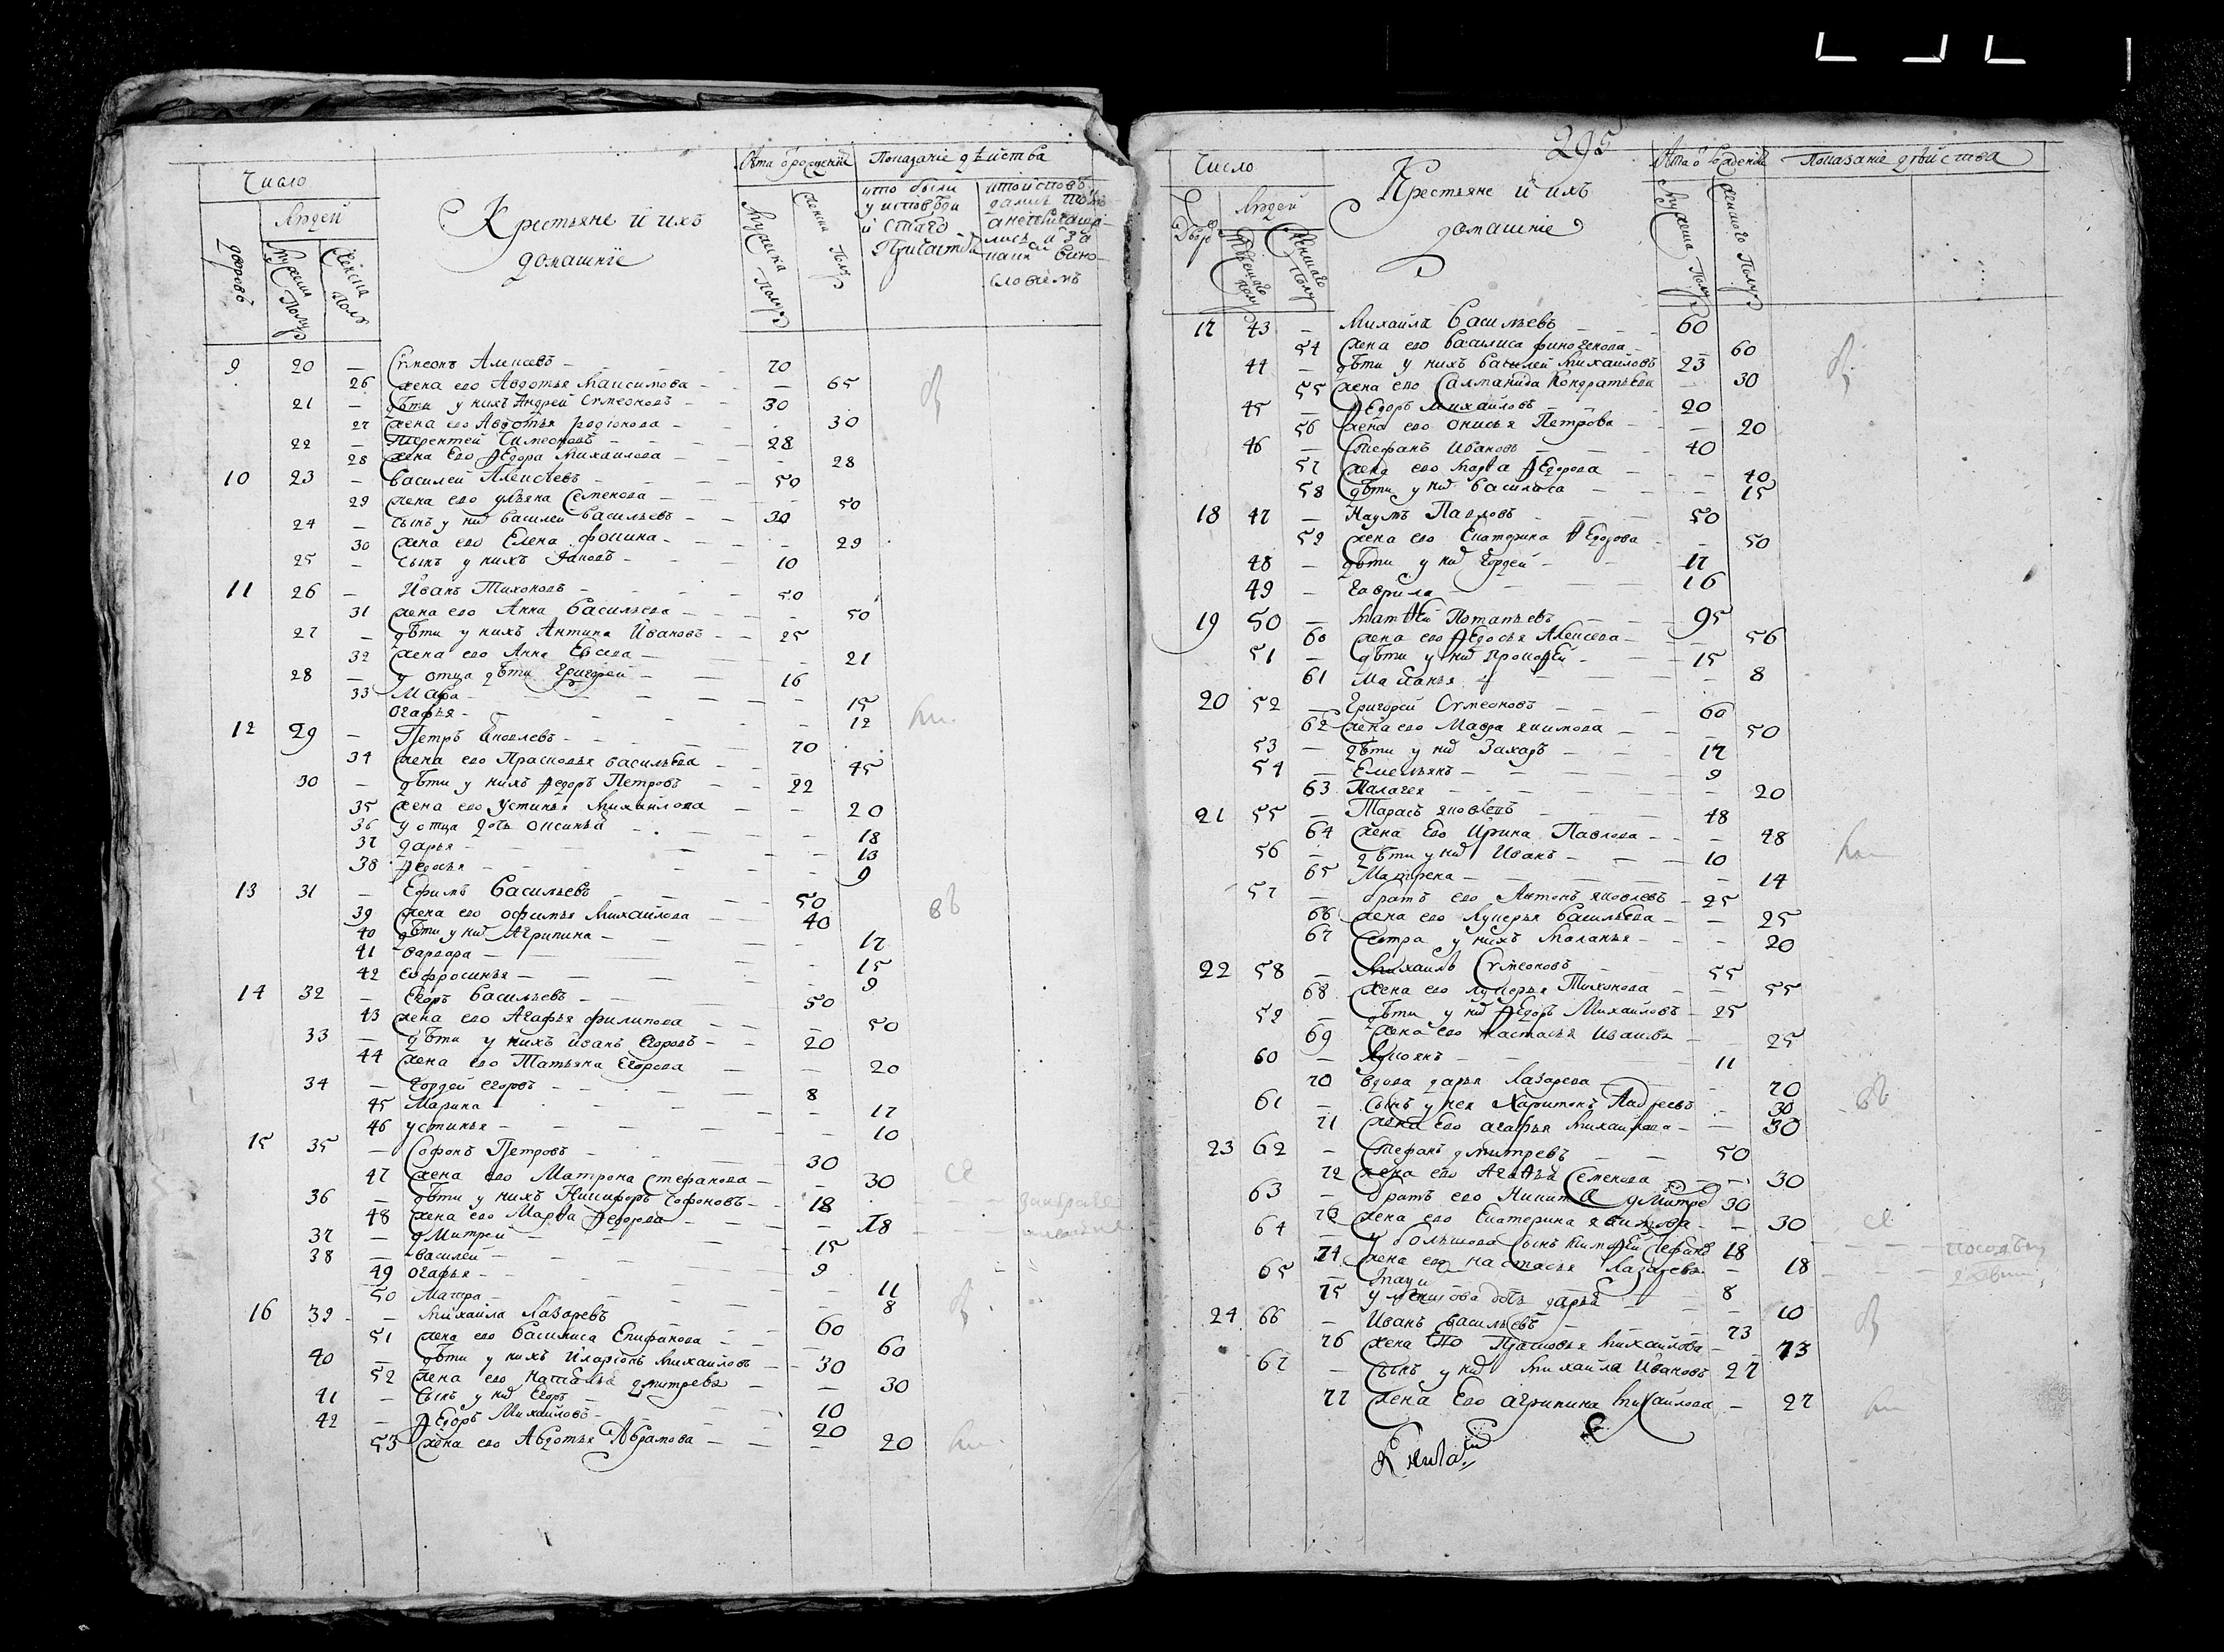 Число
Людей
дворовъ
Мужеска Полу
Женска Полу
Крестьяне и ихъ
домашніе
Лѣта ѿ рожденїя
Мужеска Полу
Женска Полу
Показаніе дѣйства
кто были
у исповѣди
и Стаго
Причастїя
9 20 — Сѵмеонъ Алексѣевъ — 70
26 жена ево Авдотья Максимова — 65
21 — дѣти у нихъ Андрей Сѵмеоновъ — 30
27 жена ево Авдотья Родіонова — 30
22 — Терентей Симеоновъ — 28
28 жена Ево Ѳедора Михаилова — 28
10 23 — Василей Алексѣевъ — 50
29 жена ево Ульяна Семенова — 50
24 — сынъ у них Василей Васильевъ — 30
30 жена ево Елена Фокина — 29
25 — сынъ у нихъ Яковъ — 10
11 26 — Иванъ Тихоновъ — 50
31 жена ево Анна Васильева — 50
27 — дѣти у нихъ Антипа Ивановъ — 25
32 жена ево Анна Евсева — 21
28 — у отца дѣти Григорей — 16
33 Мавра — 15
Огафья — 12
12 29 — Петръ Яковлевъ — 70
34 жена ево Прасковья Васильева — 45
30 — дѣти у нихъ Ѳедоръ Петровъ — 22
35 жена ево Устинья Михаилова — 20
36 у отца дочь Оксинья — 18
37 Дарья — 13
38 Ѳедосья — 9
13 31 — Ефимъ Васильевъ — 50
39 жена ево Офимья Михаилова — 40
40 дѣти у них Агрипина — 17
41 Варвара — 15
42 Евфросинья — 9
14 32 — Егоръ Васильевъ — 50
43 жена ево Агафья Филипова — 50
33 — дѣти у нихъ Иванъ Егоровъ — 20
44 жена ево Татьяна Егорова — 20
34 — Гордей Егоровъ — 8
45 Марина — 17
46 Устинья — 10
15 35 — Софонъ Петровъ — 30
47 жена ево Матрона Стефанова — 30
36 — дѣти у нихъ Никифоръ Софоновъ — 18
48 жена ево Марѳа Ѳедорова — 18
37 — дмитрей — 15
38 — Василей — 9
49 Огафья — 11
50 Мавра — 8
16 39 — Михаила Лазаревъ — 60
51 жена ево Василиса Епифанова — 60
40 — дѣти у нихъ Иларіонъ Михаиловъ — 30
52 жена ево Наталья дмитрева — 30
41 — Сынъ у них Егоръ — 10
42 — Ѳедоръ Михаиловъ — 20
53 жена ево Авдотья Абрамова — 20
295
Число
Дворов
Людей
Мужескаго полу
Женскаго Полу
Крестьяне и ихъ
домашніе
Лѣта ѿ рожденія
Мужеска Полу
Женскаго Полу
Показаніе дѣйства
17 43 — Михаила Васильевъ — 60
54 жена ево Василиса Финогенова — 60
44 — дѣти у нихъ Василей Михаиловъ 23
55 жена ево Саламанида Кондратьева — 30
45 — Ѳедоръ Михаиловъ — 20
56 жена ево Онисья Петрова — 20
46 — Стефанъ Ивановъ — 40
57 жена ево Марѳа Ѳедорова — 40
58 дѣти у них Василиса — 15
18 47 — Наумъ Павловъ — 50
59 жена ево Екатерина Ѳедорова — 50
48 — дѣти у них Гордей — 17
49 — Гаврила — 16
19 50 — Матѳей Потапьевъ — 95
60 жена ево Ѳедосья Алексева — 56
51 — дѣти у них Прокофей — 15
61 Маланья — 8
20 52 — Григорей Сѵмеоновъ — 60
62 жена ево Мавра Якимова — 50
53 — дѣти у них Захаръ — 17
54 — Емельянъ — 9
63 Палагея — 20
21 55 — Тарасъ Яковлевъ — 48
64 жена Ево Ирина Павлова — 48
56 — дѣти у них Иванъ — 10
65 Матрена — 14
57 — братъ ево Антонъ Яковлевъ — 25
66 жена ево Лукерья Васильева — 25
67 Сестра у нихъ Маланья — 20
22 58 — Михаилъ Сѵмеоновъ 55
68 жена ево Лукерья Тихонова — 55
59 — дѣти у них Ѳедоръ Михаиловъ — 25
69 жена ево Настасья Иванва — 25
60 — Лукоянъ — 11
70 вдова дарья Лазарева — 70
61 — Сынъ у нея Харитонъ Андреевъ — 30
71 жена Ево Агафья Михаилова — 30
23 62 — Стефанъ дмитревъ — 50
72 жена ево Агафья Семенова — 30
63 — братъ ево Никита дмитре 30
73 жена ево Екатерина — 30
64 — у большова сынъ Тимоѳей Стефанв 18
74 жена ево Настасья Лазарева — 18
65 — 8
75 у меншова дочь дарья — 10
24 66 — Иванъ Васильевъ — 73
76 жена Ево Прасковья Михаилова — 73
67 — Сынъ у них Михаила Ивановъ 27
77 жена Ево Агрипина Михаилова — 27